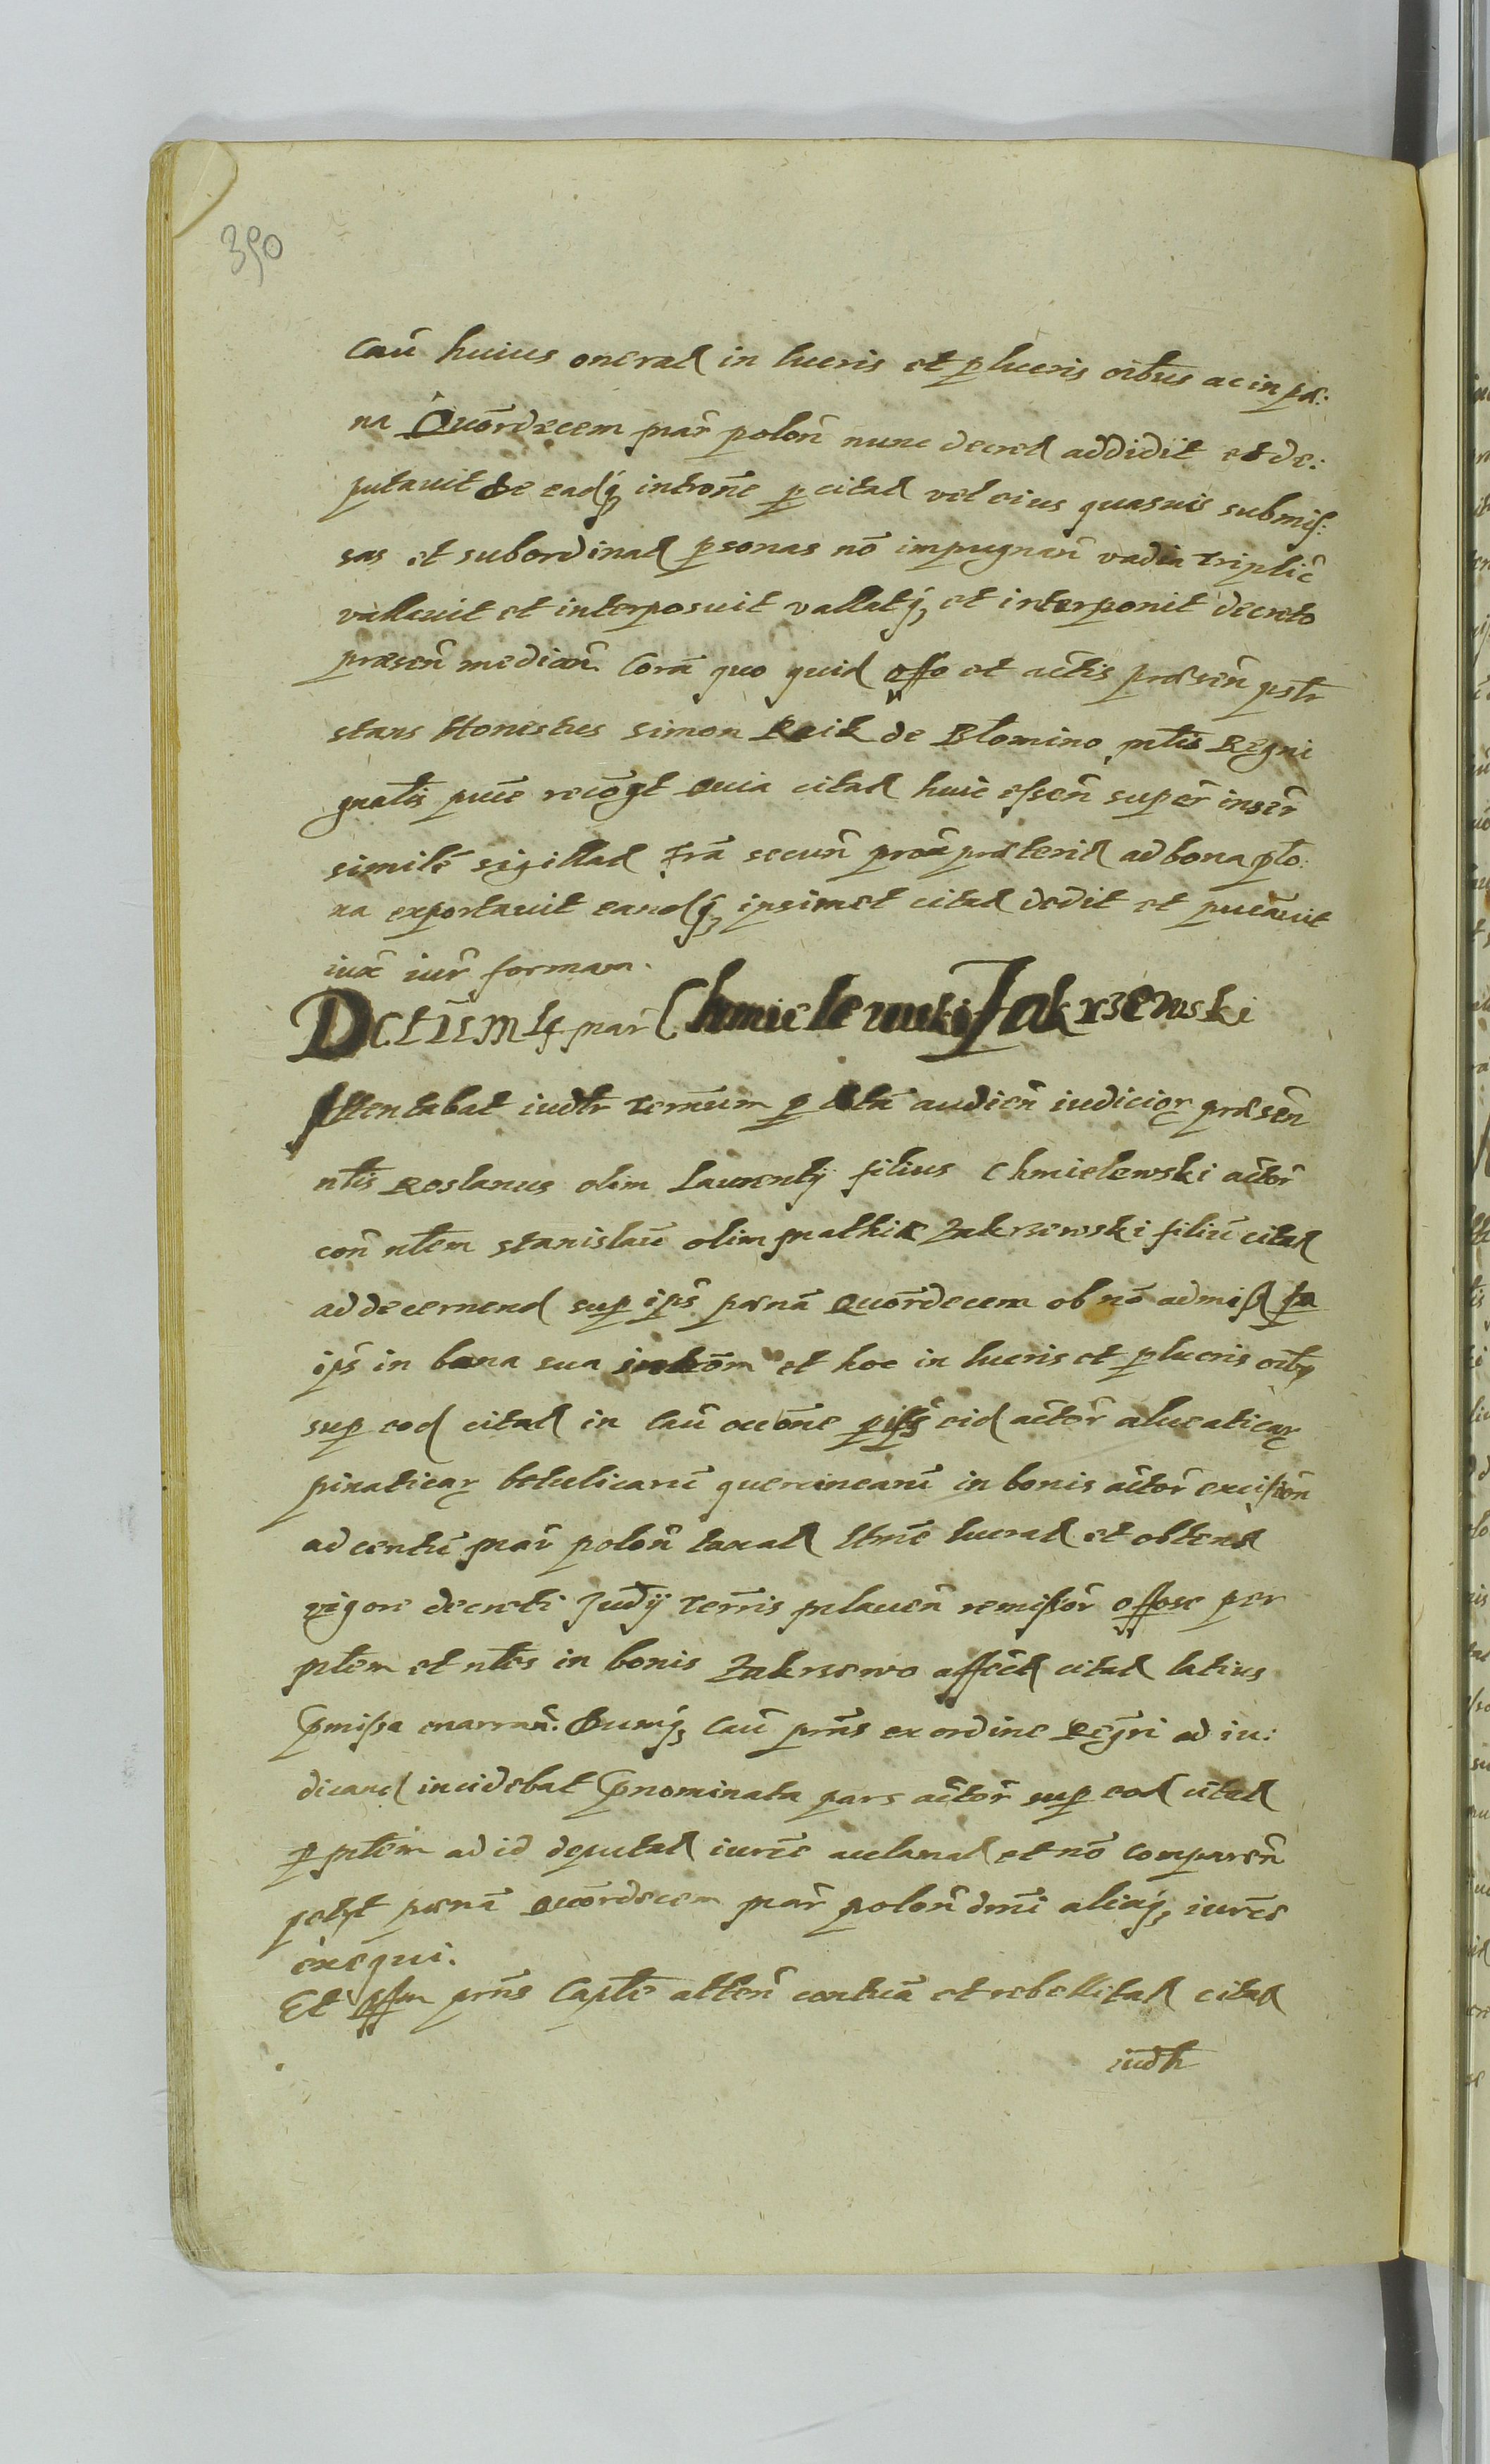 390
Caũ huius onerat in lucris et perlucris oĩbus ac in pæ:
na Quõrdecem mar̃ polon̄ nunc decret addidit et de:
putavit de eadq̃ introñe p citat vel eius quasuis submis:
sas et subordinat personas nõ impugnan̄ vadia triplic̃
vallauit et interposuit vallatq̃ et interponit decreto
præsen̄ median̄. Corã quo quid offo et actis præsen̄
stans Honestus Simon Kuik de Blomino mĩs Regni
gnãlis pũce recõgt Quia citat huic essen̄ super inser̃
simile sigillat frã secun̄ prox̃ præterit ad bona
na exportauit eandq̃ ipsimet citat dedit et pucãuit
iux̃ iur̃ formam.
mar̃ Chmielewski Zakrzewski
Attentabat iudr̃ Terminum p audien̄ iudicior præsen̄
nb̃lis Roslanus olim Laurentij filius Chmielewski actor̃
con̄ nb̃lem Stanislaũ olim Mathiæ Zakrzewski filiũ citat
ad decernend sup ips̃ pœnã Quõrdecem ob nõ admiss p
ips̃ in bona sua introm et hoc in lucris et perlucris oĩbq̃
sup eod citat in Caũ occõne eid actor̃ alveaticar
pinaticar betulicarũ quercinearũ in bonis actor̃ excision̄
ad centũ mar̃ polon̄ taxat ltmẽ lucrat et obtent
vigore decreti Judij Terr̃is mlauen̄ remissor̃ offose per
mlem et nb̃les in bonis Zakrzewo affect citat latius
pmissa enarran̄. Dumq̃ Caũ prñs ex ordine Regr̃i ad iu:
dicand incidebat pnominata pars actor̃ sup eod citat
p mlem ad id deputat iurẽ acclamat et nõ comparen̄
petyt pœnã Quõrdecem mar̃ polon̄ dm̃i aliaq̃ iurẽ
exequi.
Et offm prñs Captle atten̄ contucã et rebellitat citat
iudr̃